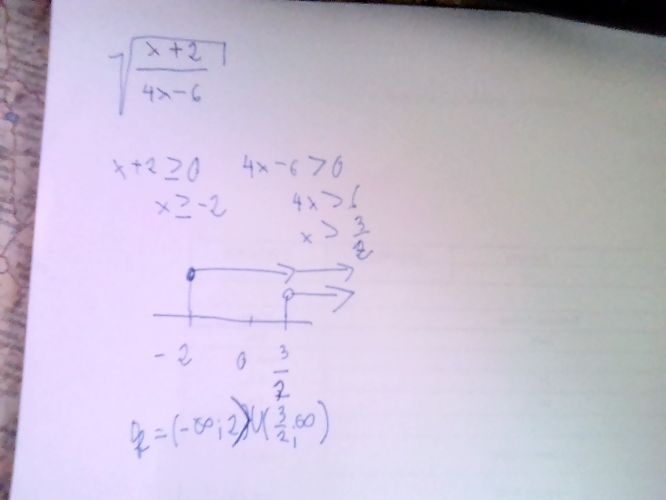 √((x+2)/(4x-6))
x+2≥0 4x-6>0
x≥-2 4x>6
x>3/2
-2 0 3/2
=(-∞;2)∪(3/2;∞)